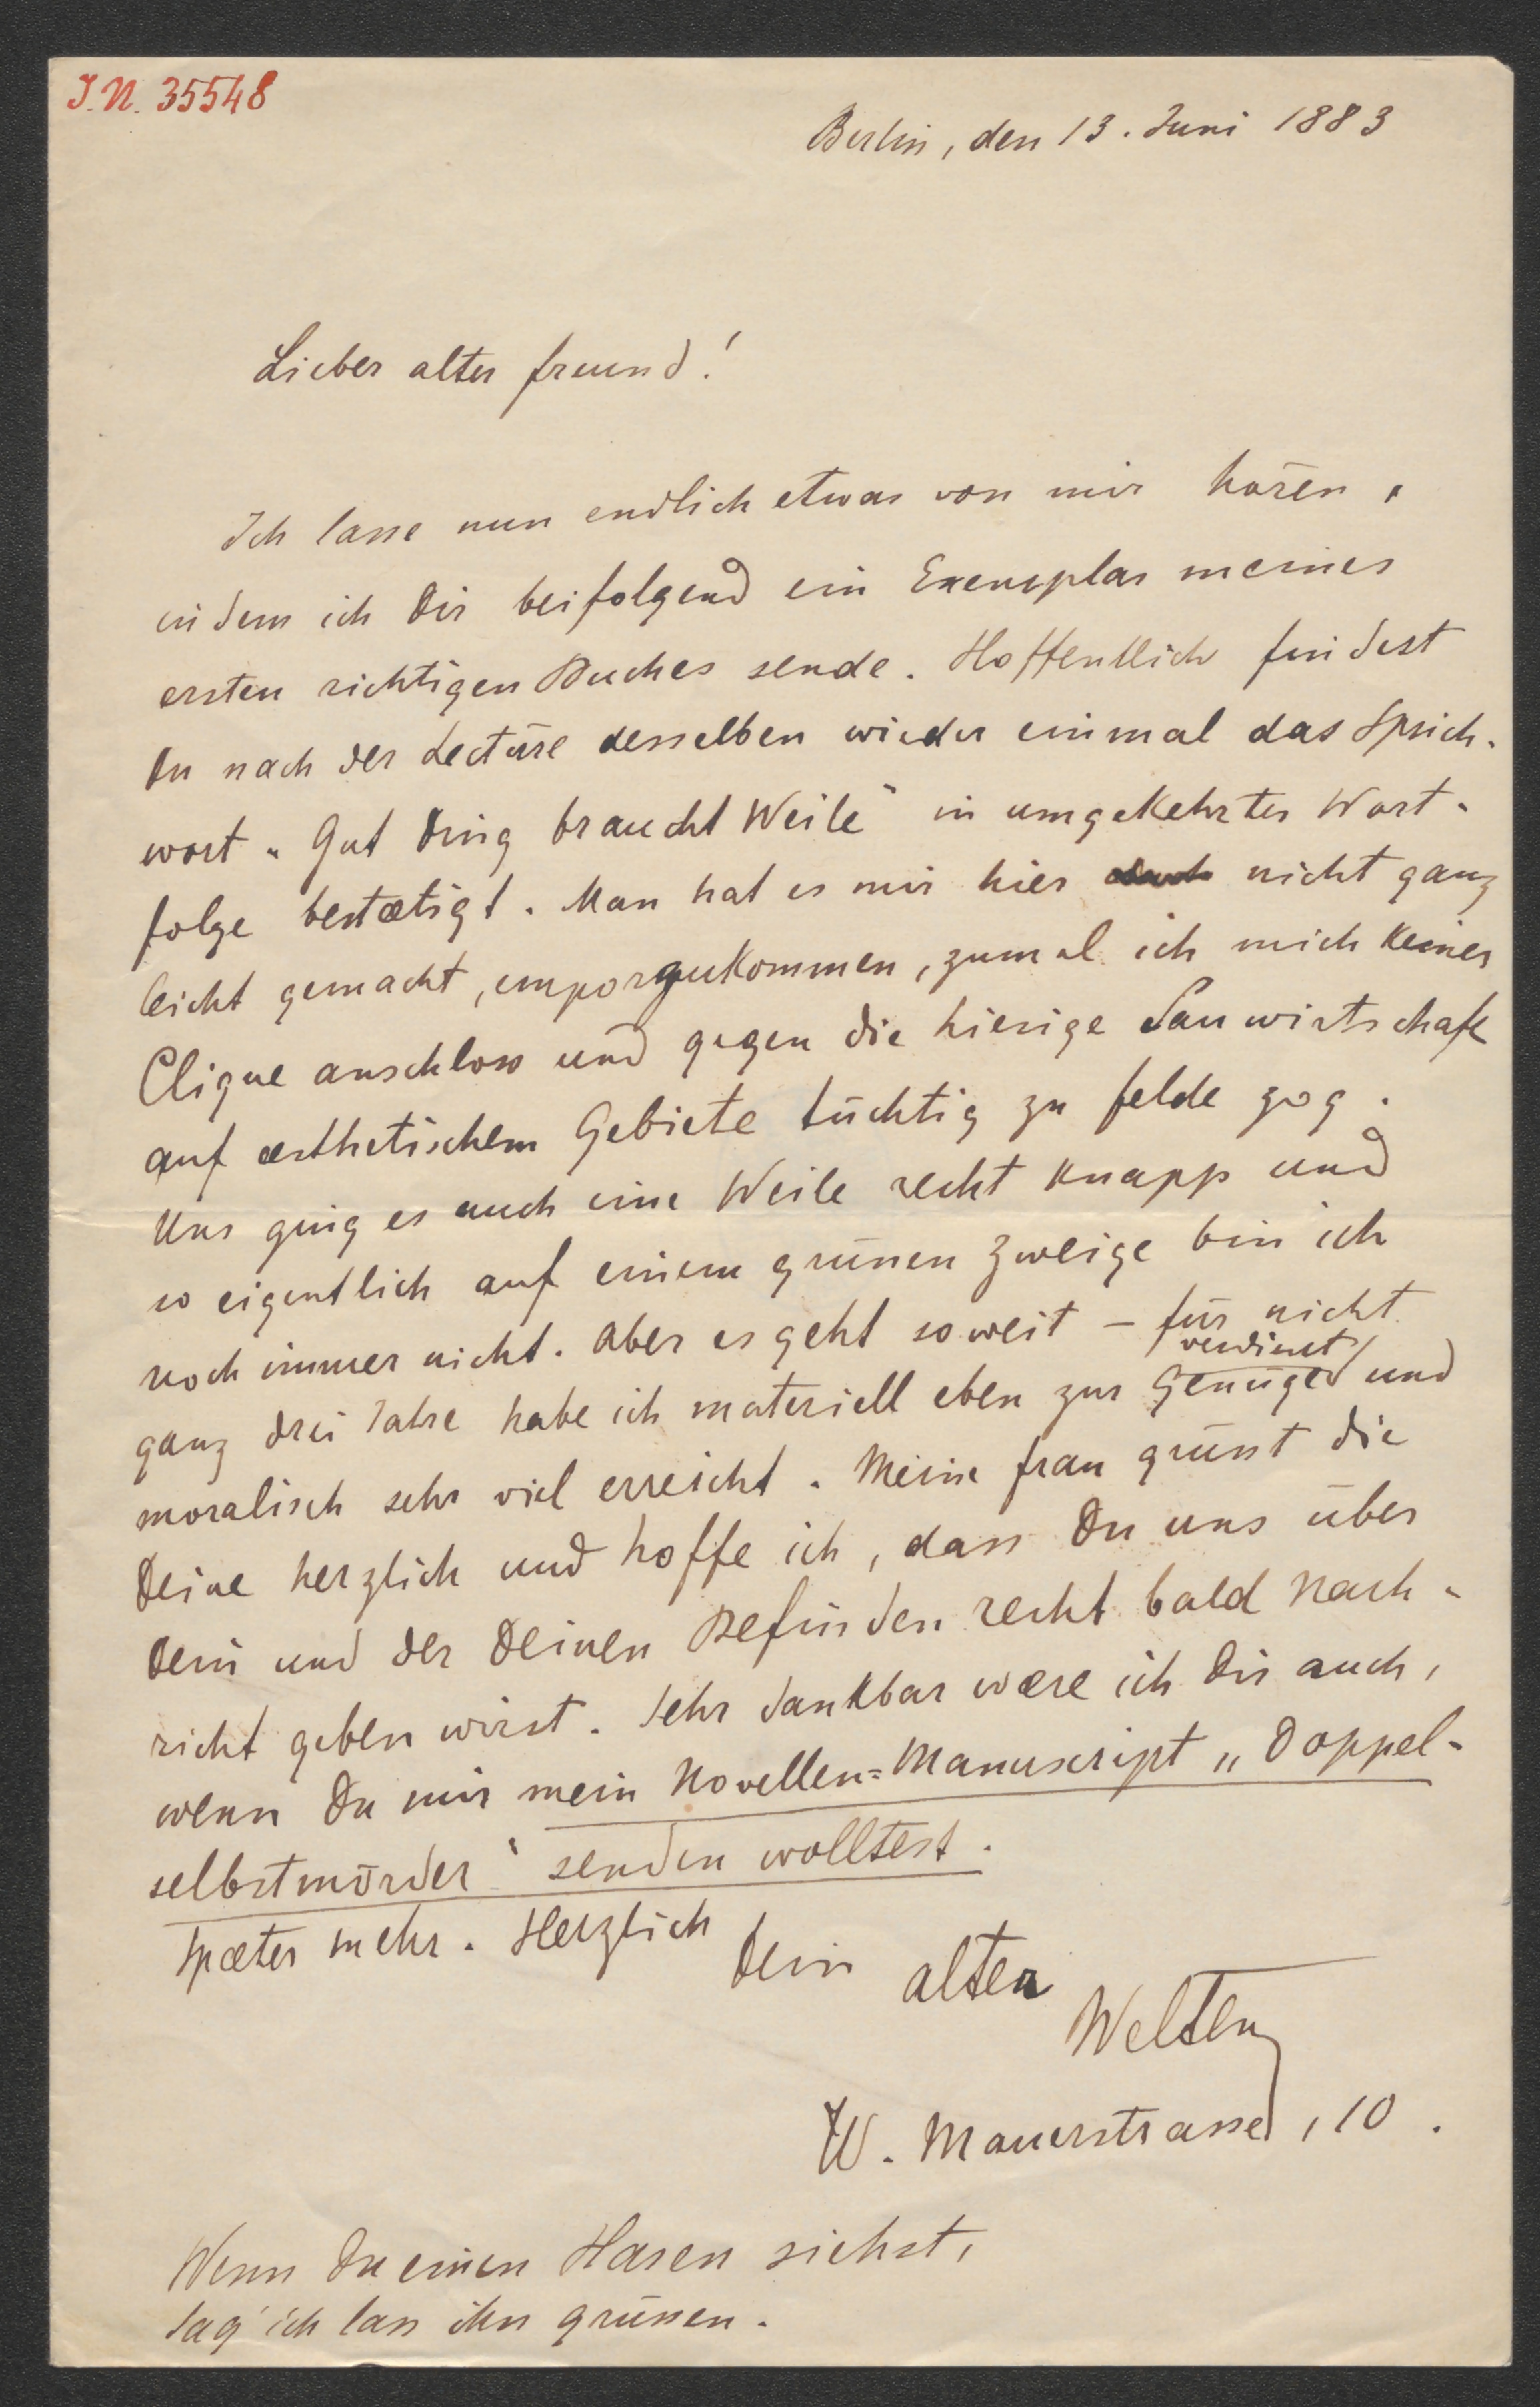 J.N. 35548
Berlin, den 13. Juni 1883
Lieber alter Freund!
Ich lasse nun endlich etwas von mir hören,
indem ich Dir beifolgend ein Exemplar meines
ersten richtigen Buches sende. Hoffentlich findest
Du nach der Lectüre desselben wieder einmal das Sprich-
wort „Gut Ding braucht Weile" in umgekehrter Wort-
folge bestætigt. Man hat es mir hier nicht ganz
leicht gemacht, emporzukommen, zumal ich mich keiner
Clique anschloss und gegen die hiesige Sauwirtschaft
auf æsthetischem Gebiete tüchtig zu Felde zog.
Uns ging es auch eine Weile recht knapp und
so eigentlich auf einem grünen Zweige bin ich
noch immer nicht. Aber es geht soweit – für nicht
ganz drei Jahre habe ich materiell eben zur Genüge verdient und
moralisch sehr viel erreicht. Meine Frau grüsst die
Deine herzlich und hoffe ich, dass Du uns über
Dein und der Deinen Befinden recht bald Nach-
richt geben wirst. Sehr dankbar wære ich Dir auch,
wenn Du mir mein Novellen=Manuscript „Doppel-
selbstmörder" senden wolltest.
Spæter mehr. Herzlich
Dein alter
Welten
W. Mauerstrasse, 10.
Wenn Du einen Hasen siehst,
sag' ich lass ihn grüssen.